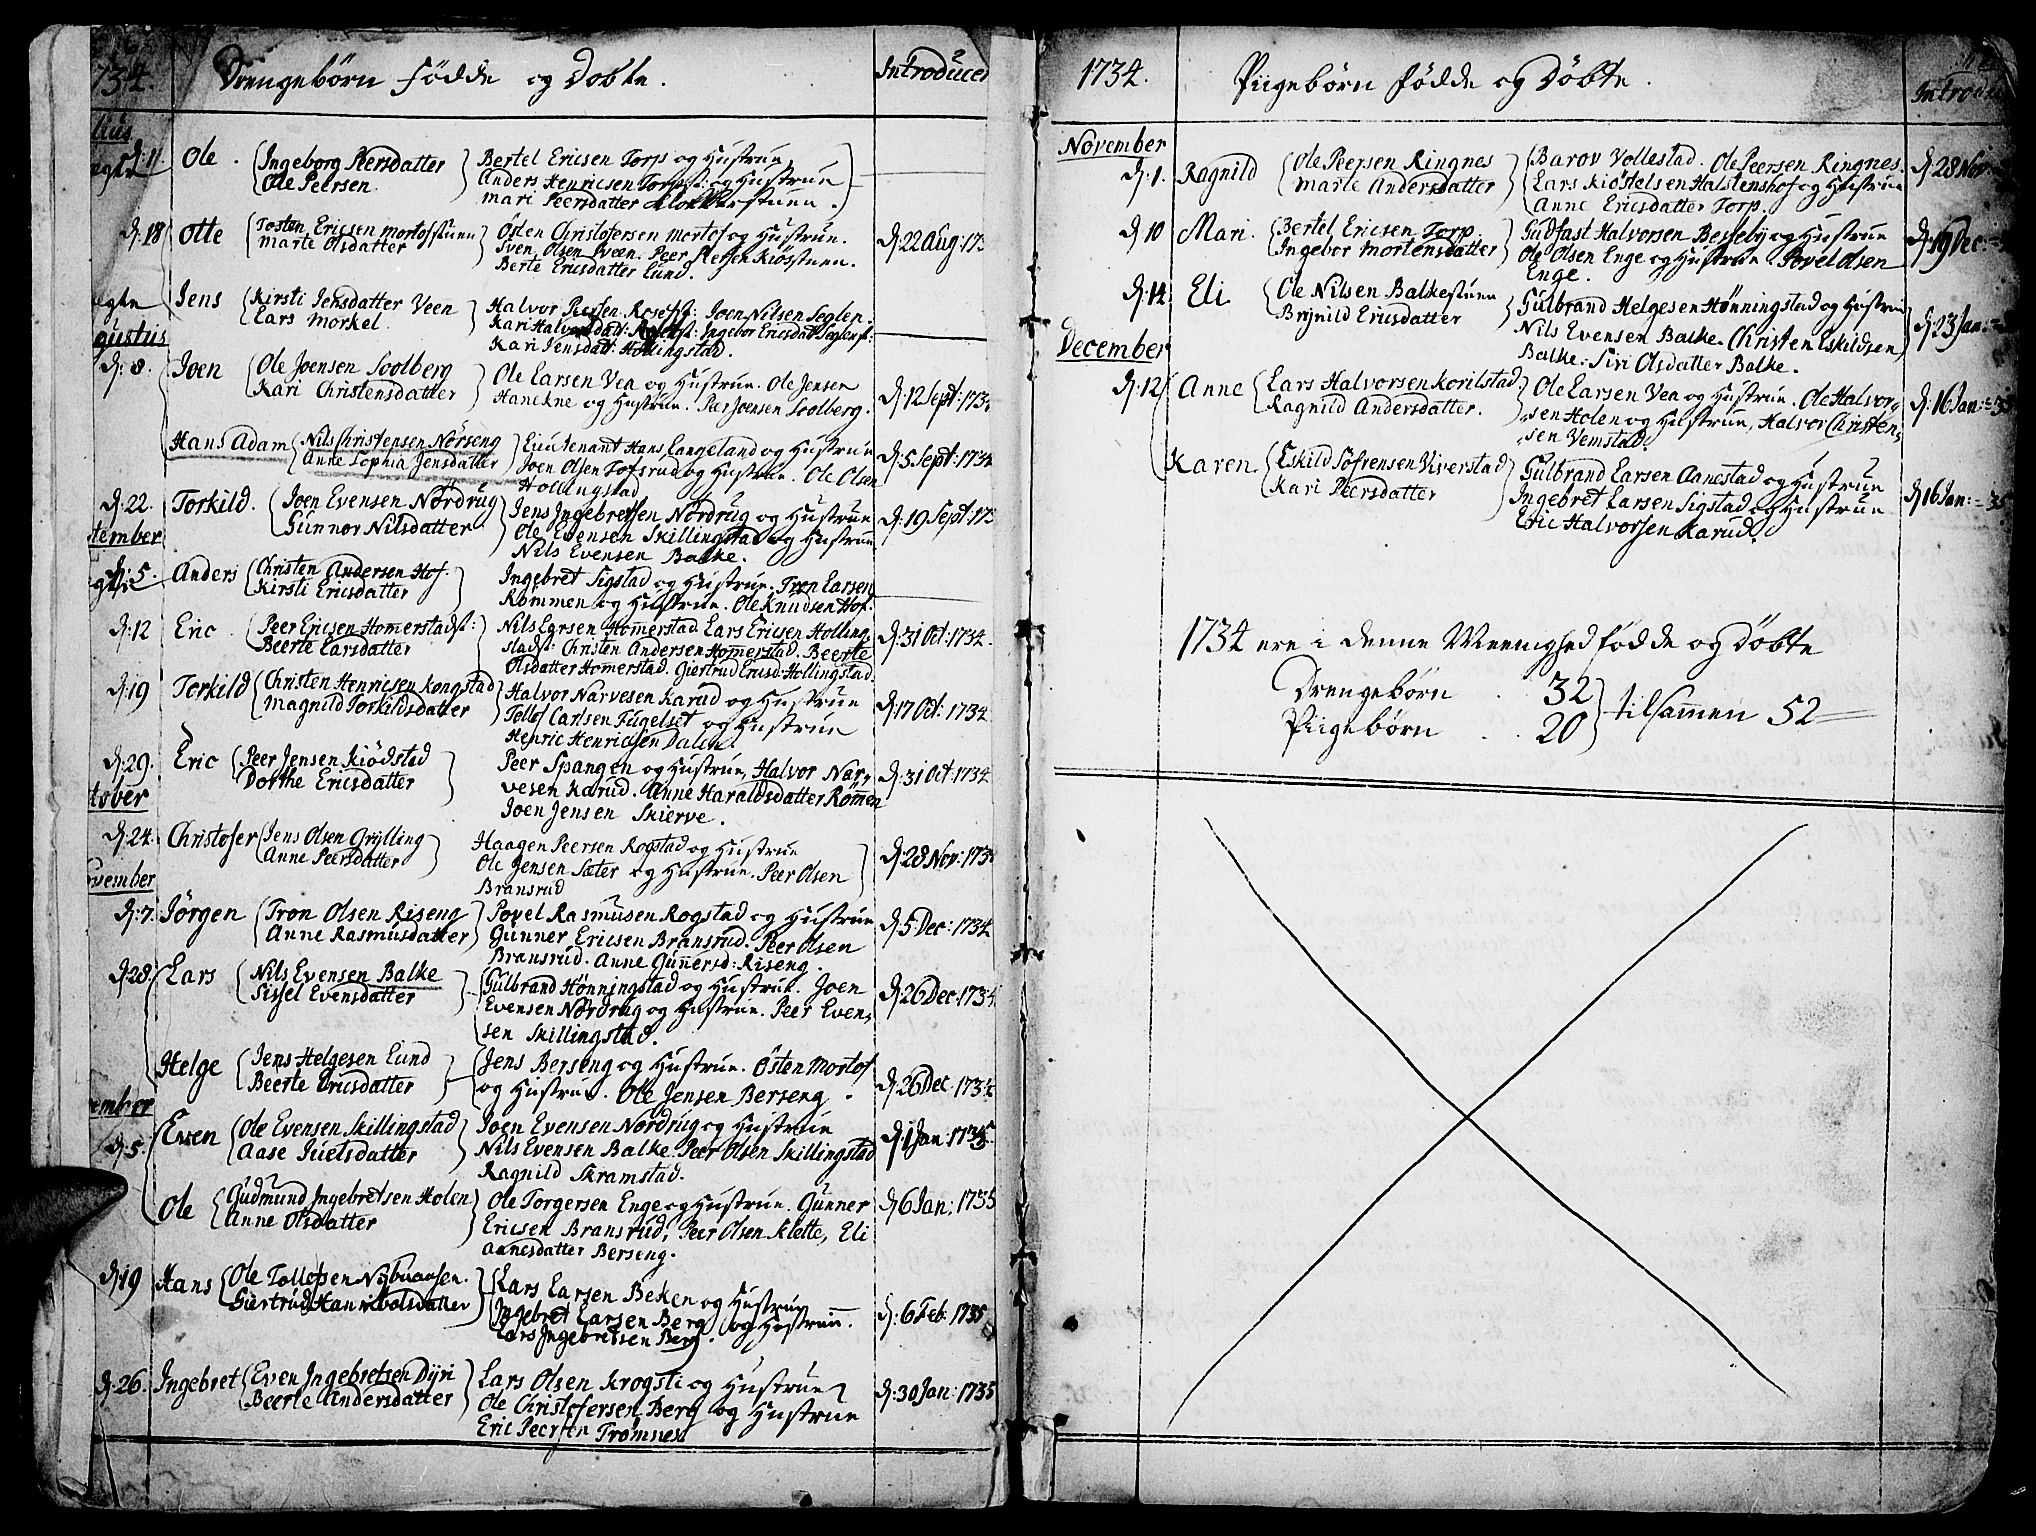 734. Drengebörn födde og Döbte. Introducer
lius
d. 11. Ole. Ingeborg Peersdatter Bertel Ericsen Torp og Hustrue
Ole Peersen. Anders Henricsen Torpst: og Hustrue
mari Peersdatter Klokkerstuen.
d. 18 Otte Tosten Ericsen mortofstuen Östen Christofersen mortof og Hustrue. d. 22 Aug: 173
marte Olsdatter Sven Olsen Sveen. Peer
Berte Ericsdatter Lund.
Jens Kirsti Jensdatter Veen Halvor Peersen Roseth: Joen Nilsen Seglen.
Lars morkel. Kari Halvorsdat: Ingebor Ericsdat: Seglenst:
Kari Jensdat: Hollingstad.
gustus
d. 8. Joen Ole Joensen Soolberg Ole Larsen Vea og Hustrue. Ole Jensen d. 12 Sept: 173
Kari Christensdatter Hanekne og Hustrue. Peer Joensen Soolberg.
Hans Adam Nils Christensen Nörseng Lieutenant Hans Langeland og Hustrue d. 5 Sept: 1734
Anne Sophia Jensdatter Joen Olsen Tofsrud og Hustrue. Ole Olsen
Hollingstad
d. 22. Torkild. Joen Evensen Nordrug Jens Ingebretsen Nordrug og Hustrue d. 19 Sept: 173
Gunnor Nilsdatter Ole Evensen Skillingstad og Hustrue
Nils Evensen Balke.
tember
d. 5. Anders Christen Andersen Hof. Ingebret Sigstad og Hustrue. Tron Larsen
Kirsti Ericsdatter Rommen og Hustrue. Ole Knudsen Hof.
d. 12 Eric. Peer Ericsen Homerstadst: Nils Larsen Homerstad. Lars Ericsen Holling- d. 31 Oct: 1734.
Beerte Larsdatter stadst: Christen Andersen Homerstad. Beerte
Olsdatter Homerstad. Giertrud Ericsd: Hollingstad.
d. 19 Torkild Christen Henricsen Kongstad Halvor Narvesen Karud og Hustrue d. 17 Oct: 1734
Magnild Torkildsdatter Tollof Carlsen Fugelset og Hustrue
Henric Henricsen Dalen.
d. 29. Eric Peer Jensen Kiödstad Peer Spangen og Hustrue, Halvor Nar- d. 31 Oct: 1734.
Dorthe Ericsdatter vesen Karud. Anne Haraldsdatter Römen
Joen Jensen Skierve.
tober
d. 24. Christofer Jens Olsen Grylling Haagen Peersen Rogstad og Hustrue d. 28 Nov: 173
Anne Peersdatter Ole Jensen Sæter og Hustrue. Peer Olsen
Bransrud
ovember
d. 7. Jörgen Tron Olsen Riseng Povel Rasmusen Rogstad og Hustrue d. 5 Dec: 1734
Anne Rasmusdatter Gunner Ericsen Bransrud. Peer Olsen
Bransrud. Anne Gunnersd: Riseng.
d. 28. Lars Nils Evensen Balke Gulbrand Hönningstad og Hustrue. Joen d. 26 Dec: 1734.
Sissel Evensdatter Evensen Nordrug og Hustrue. Peer Even-
sen Skillingstad.
Helge Jens Helgesen Lund Jens Berseng og Hustrue. Östen Mortof d. 26 Dec. 1734
Beerte Ericsdatter og Hustrue. Ole Jensen Berseng.
ember
d. 5. Even Ole Evensen Skillingstad Joen Evensen Nordrug og Hustrue d. 1 Jan: 1735.
Aase Juelsdatter Nils Evensen Balke. Peer Olsen Skillingstad
Ragnild Skramstad.
Ole Gudmund Ingebretsen Holen Ole Torgersen Enge og Hustrue. Gunner d. 6 Jan: 1735
Anne Olsdatter Ericsen Bransrud, Peer Olsen Klette, Eli
Aanesdatter Berseng.
d. 19 Hans Ole Tollefsen Nybraaten. Lars Larsen Beken og Hustrue d. 6 Feb. 1735
Giertrud Hannibalsdatter Ingebret Larsen Berg og Hustrue.
Lars Ingebretsen Berg.
d. 26. Ingebret Even Ingebretsen Dyri Lars Olsen Krogsti og Hustrue d. 30 Jan: 1735
Beerte Andersdatter Ole Christofersen Berg og Hustrue
Eric Peersen Tromnes
1734. Piigebörn födde og Döbte. Introdu
November
d. 1. Ragnild Ole Peersen Ringnes Barov Vollestad. Ole Peersen Ringnes. d. 28 Nov:
Marte Andersdatter Lars Kiöstelsen Halstenshof og Hustrue
Anne Ericsdatter Torp.
d. 10 Mari. Bertel Ericsen Torp. Gudfast Halvorsen Berseby og Hustrue d. 19 Dec:
Ingebor Mortensdatter Ole Olsen Enge og Hustrue. Povel Olsen
Enge.
d. 14. Eli Ole Nilsen Balkestuen Gulbrand Helgesen Hönningstad og Hustrue d. 23 Jan:
Brynild Ericsdatter Nils Evensen Balke. Christen Eskildsen
Balke. Siri Olsdatter Balke.
December
d. 12 Anne Lars Halvorsen Korilstad Ole Larsen Vea og Hustrue. Ole Halvor- d. 16 Jan: 35
Ragnild Andersdatter. sen Holen og Hustrue, Halvor Christen-
sen Vemstad.
Karen Eskild Söfrensen Viverstad Gulbrand Larsen Aanestad og Hustrue d. 16 Jan: 35
Kari Peersdatter Ingebret Larsen Sigstad og Hustrue
Eric Halvorsen Karud.
1734 ere i denne Meenighed födde og Döbte
Drengebörn. 32
Piigebörn.. 20 tilsammen 52